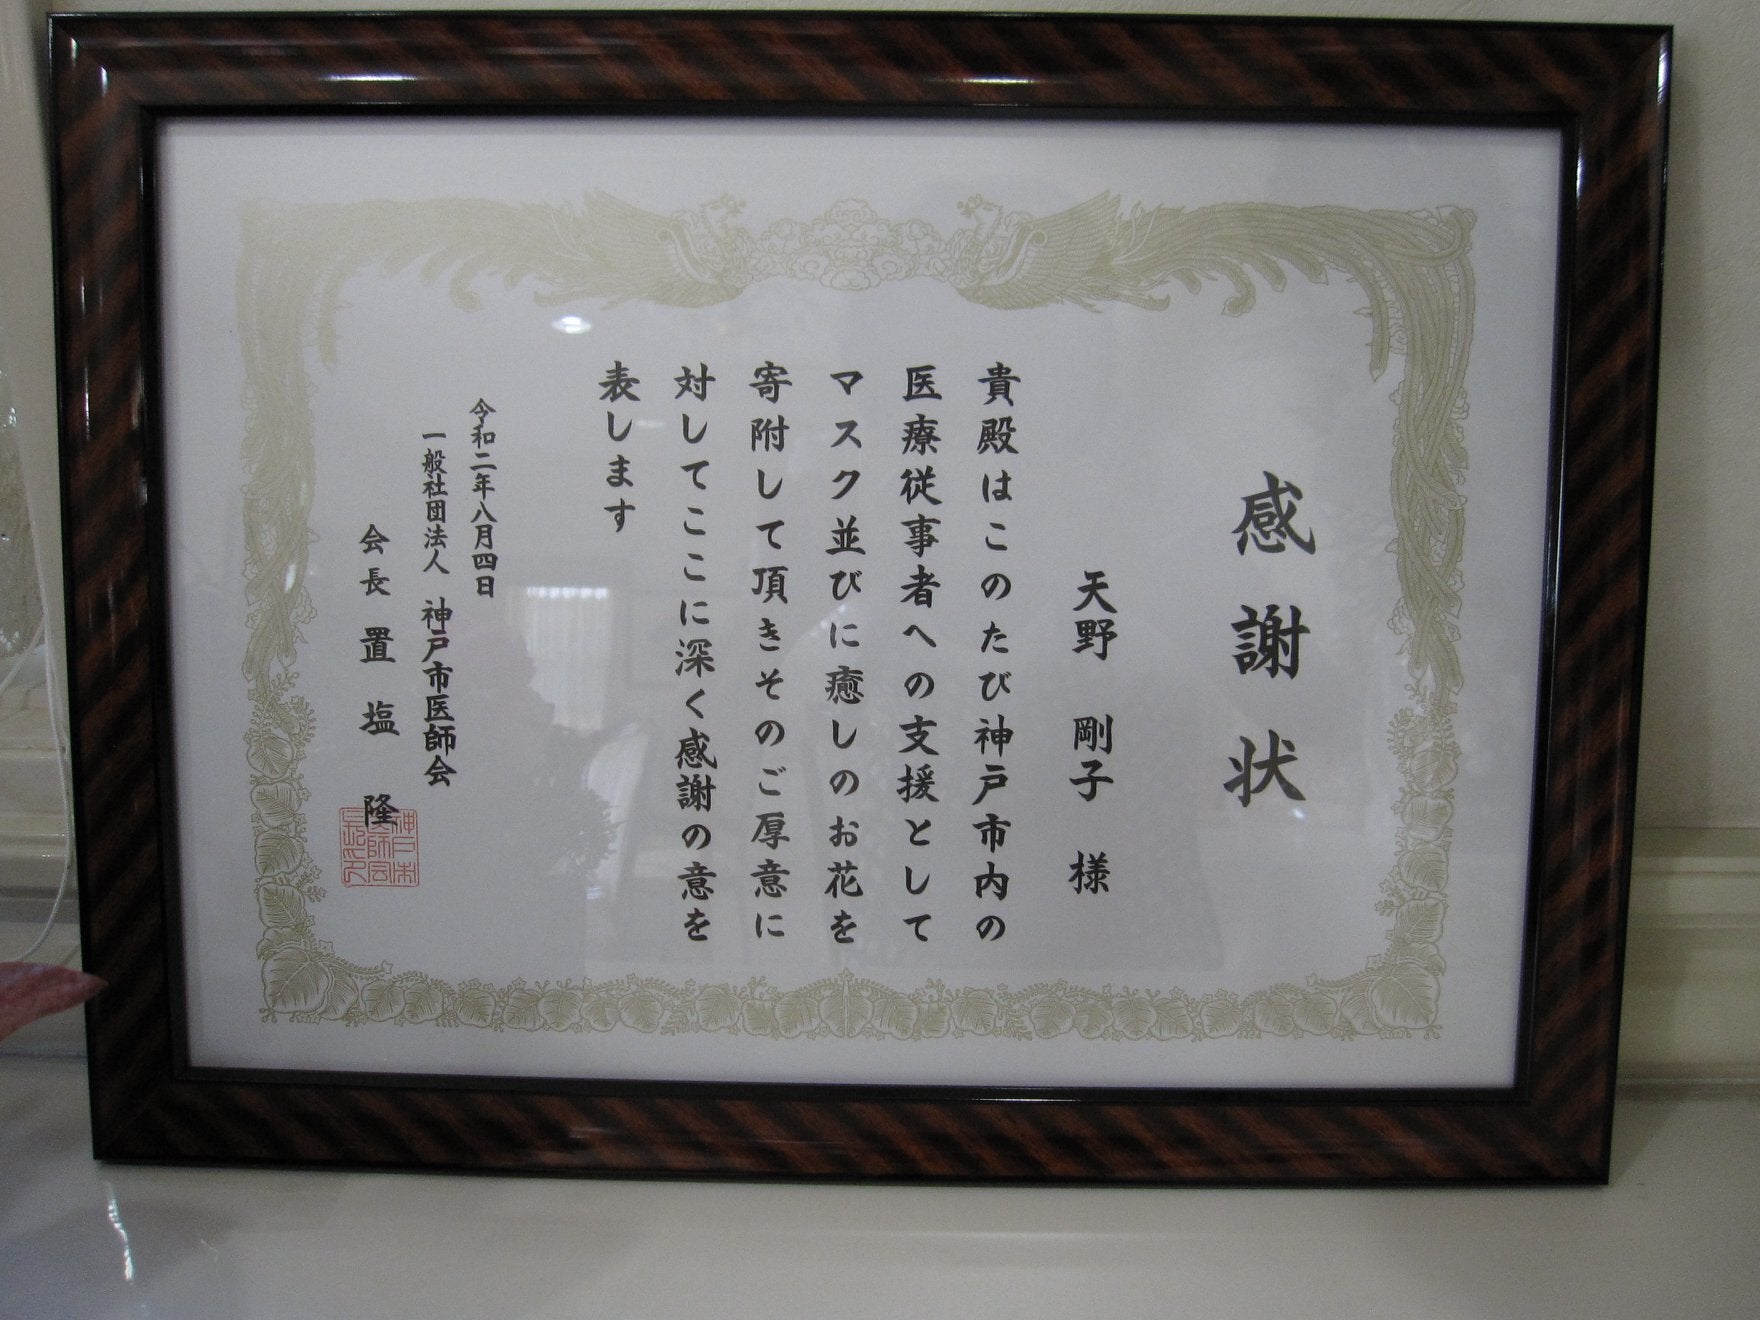 感謝状
天野 剛子 様
貴殿はこのたび神戸市内の
医療従事者への支援として
マスク並びに癒しのお花を
寄附して頂きそのご厚意に
対してここに深く感謝の意を
表します
令和二年八月四日
一般社団法人 神戸市医師会
会長 置塩 隆
神戸市医師会長之印